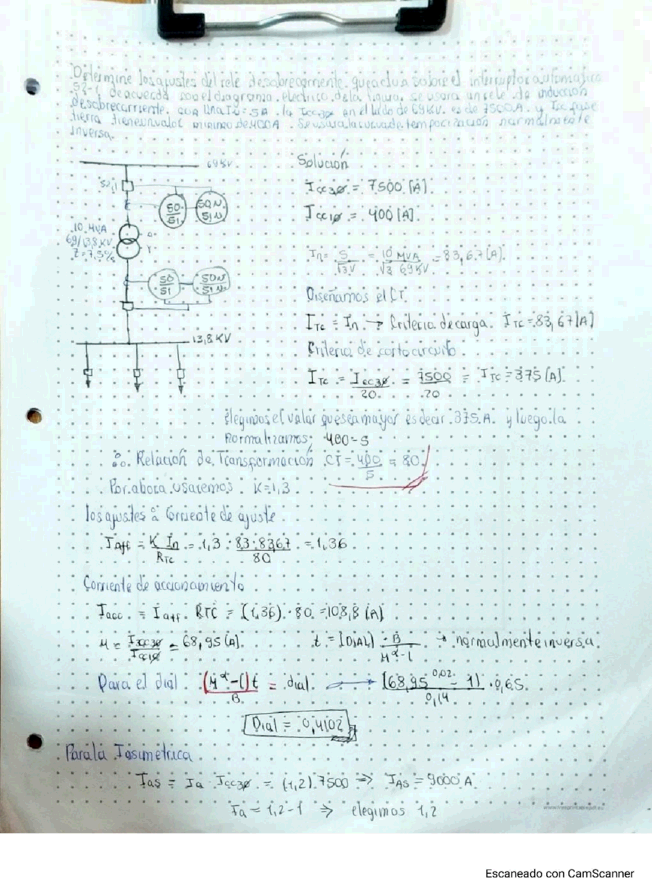 Determine los ajustes del rele de sobrecorriente que actua sobre el interruptor automatico
52-1 de acuerdo con el diagrama electrico de la figura, se usara un rele de induccion
de sobrecorriente, con una I2=5A. la Icc3Ø en el lado de 69KV. es de 7500A. y Icc fase
tierra tiene un valor minimo de 400A. Se usara la curva de tempo normalmente
inversa.
69KV
Solución
50,1
50
51
50N
51N
Icc3Ø = 7500 [A].
Icc1Ø = 400 [A]
10 MVA
69/13,8 KV
Z=7,5%
In= S/√3V = 10 MVA/√3 69KV = 83,67[A].
50
51
50N
51N
Diseñamos el CT.
ITC = In → Criteria de carga. ITC = 83,67[A]
13,8 KV
Criteria de cortocircuito.
ITC = Icc3Ø/20 = 7500/20 = ITC = 375[A].
Elegimos el valor que sea mayor es decir 375 A. y luego la
normalizamos; 400-5
∴ Relación de Transformación CT = 400/5 = 80.
Por ahora usaremos K=1,3
los ajustes ∴ Corriente de ajuste
Iajt = K In/RTC = 1,3 · 83.8367/80 = 1,36
Corriente de accionamiento
Iacc = Iajt · RTC = (1,36) · 80 = 108,8 [A]
M = Icc3Ø/Icc1Ø = 68,95 [A].
t = [DIAL] · B/M^α-1 → normalmente inversa.
Para el dial (M^α-1)t/B = dial. → (68,95^0,02 - 1)/0,14 · 0,65.
Dial = 0,4102
Para la I asimetrica
IAS = Ia · Icc3Ø = (1,2) 7500 ⇒ IAS = 9000 A
Ia = 1,2-1 ⇒ elegimos 1,2
Escaneado con CamScanner